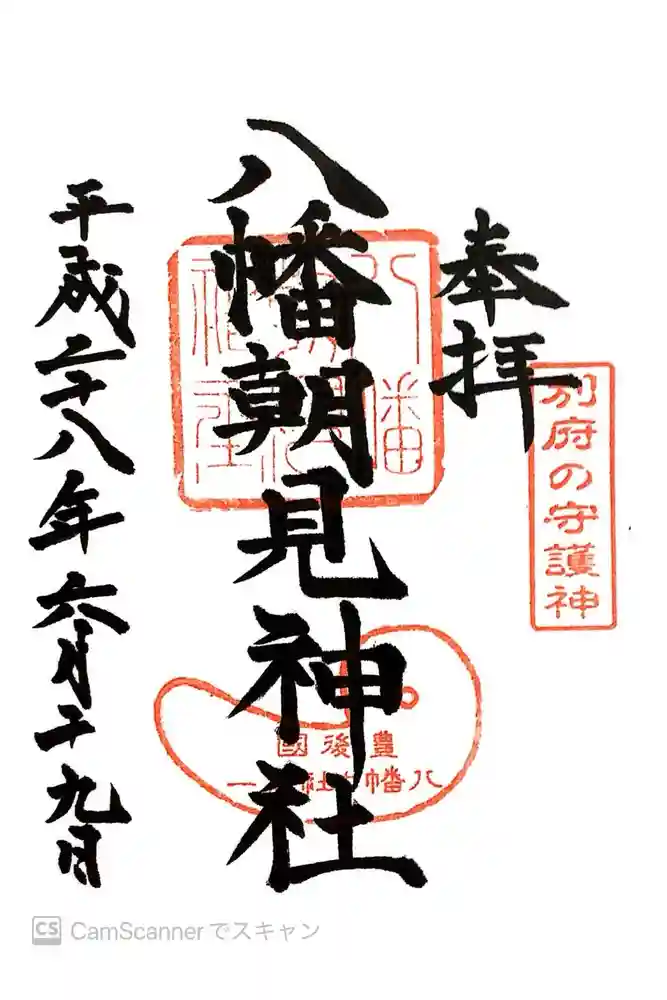 別府の守護神
奉拝
八幡朝見神社
八幡
朝見
神社
豊後國
八幡
平成二十八年六月二十九日
CS CamScannerでスキャン